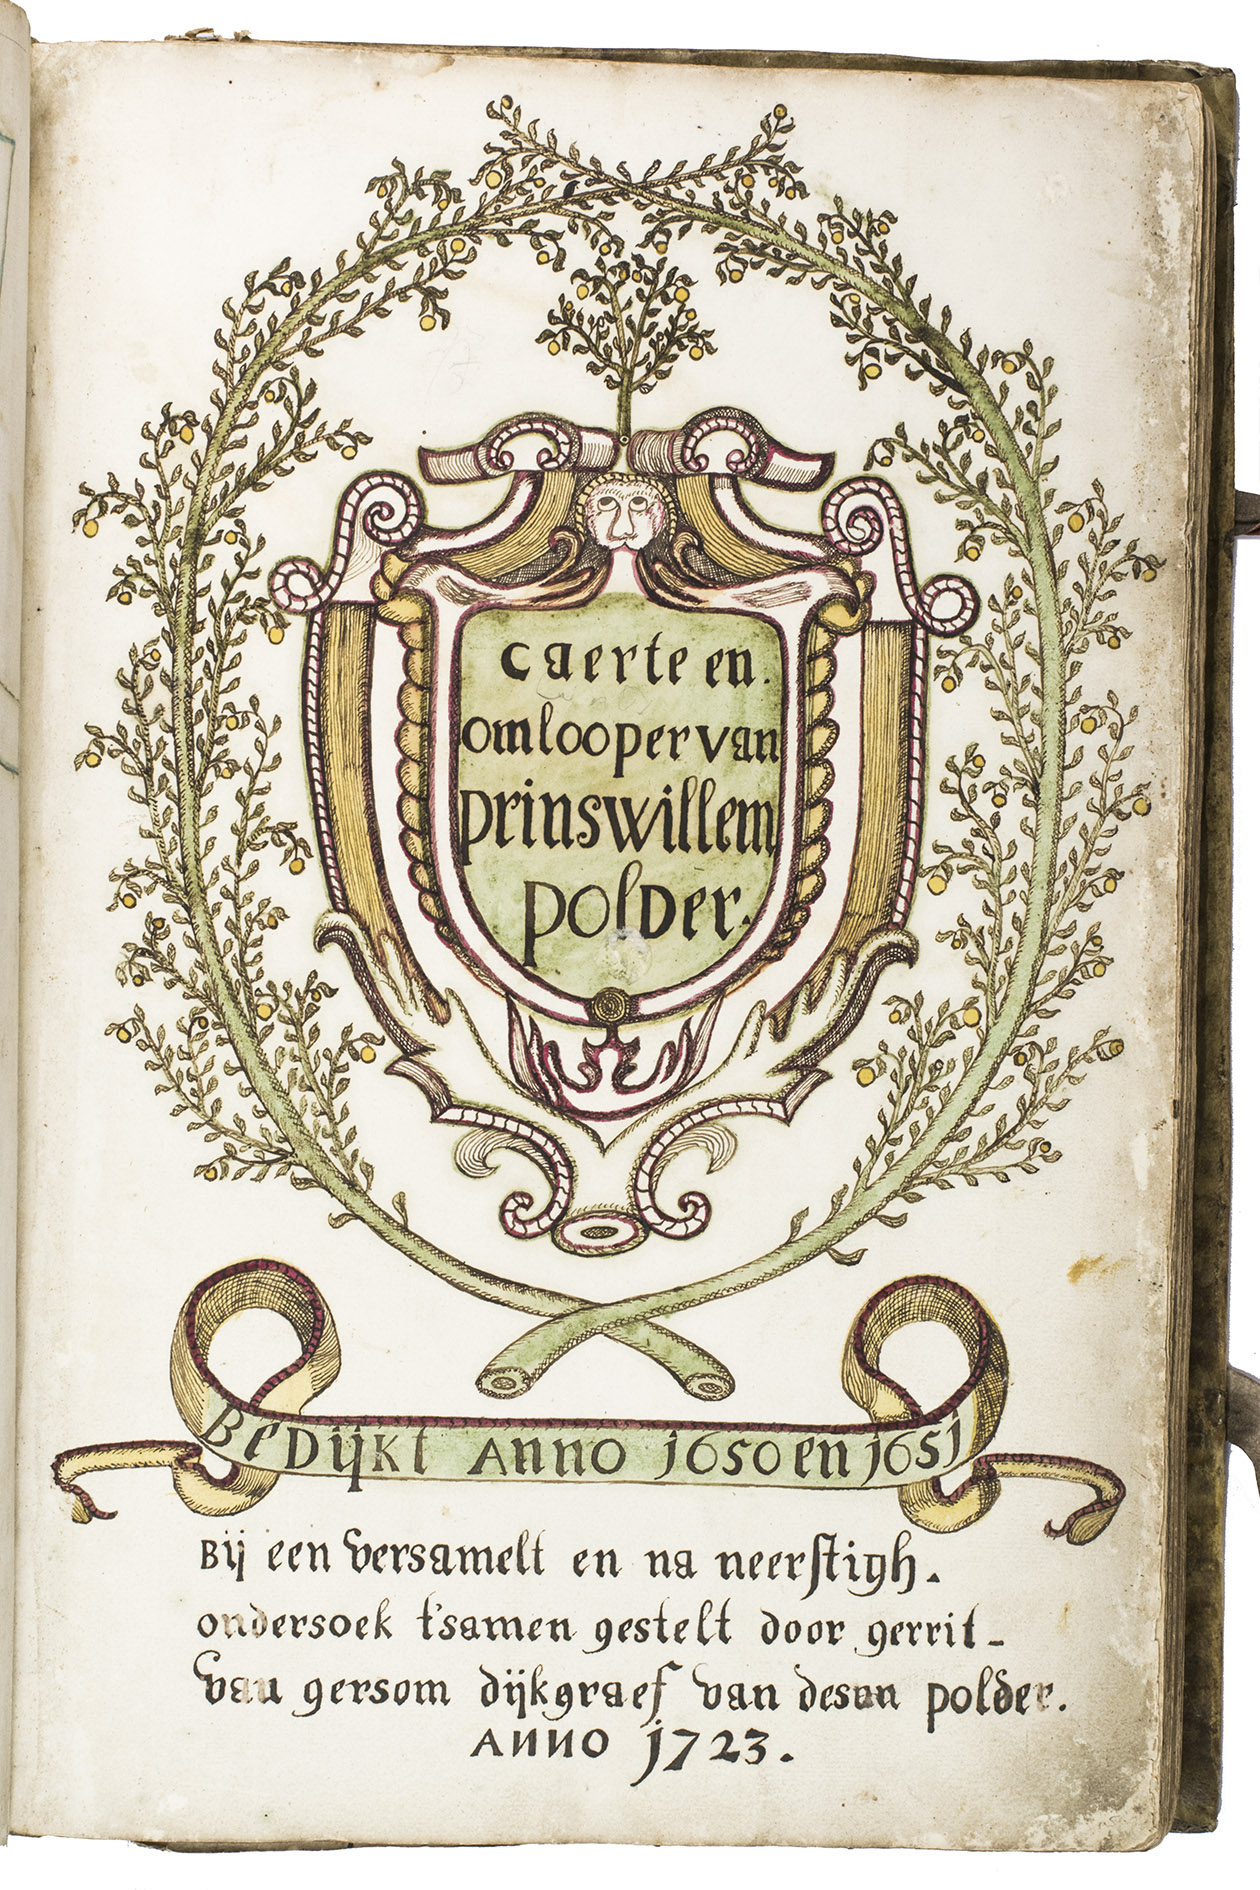 caerte en.
omlooper van
prins willem
polder.
Bedijkt Anno 1650 en 1651
Bij een versamelt en na neerstigh.
ondersoek t'samen gestelt door gerrit-
van gersom dijkgraef van desen polder.
Anno 1723.